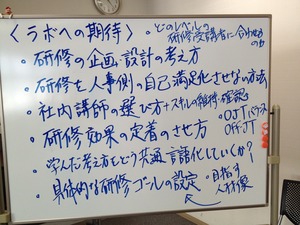 ＜ラボへの期待＞
・どのレベルの
研修受講者に合わせるのか
・研修の企画・設計の考え方
・研修を人事側の自己満足化させない方法
・社内講師の選び方+スキルの維持・確認
・研修効果の定着のさせ方
・OJTバランス
OFFJT
・学んだ考え方をどう共通言語化していくか?
・具体的な研修ゴールの設定
・目指す
人材像